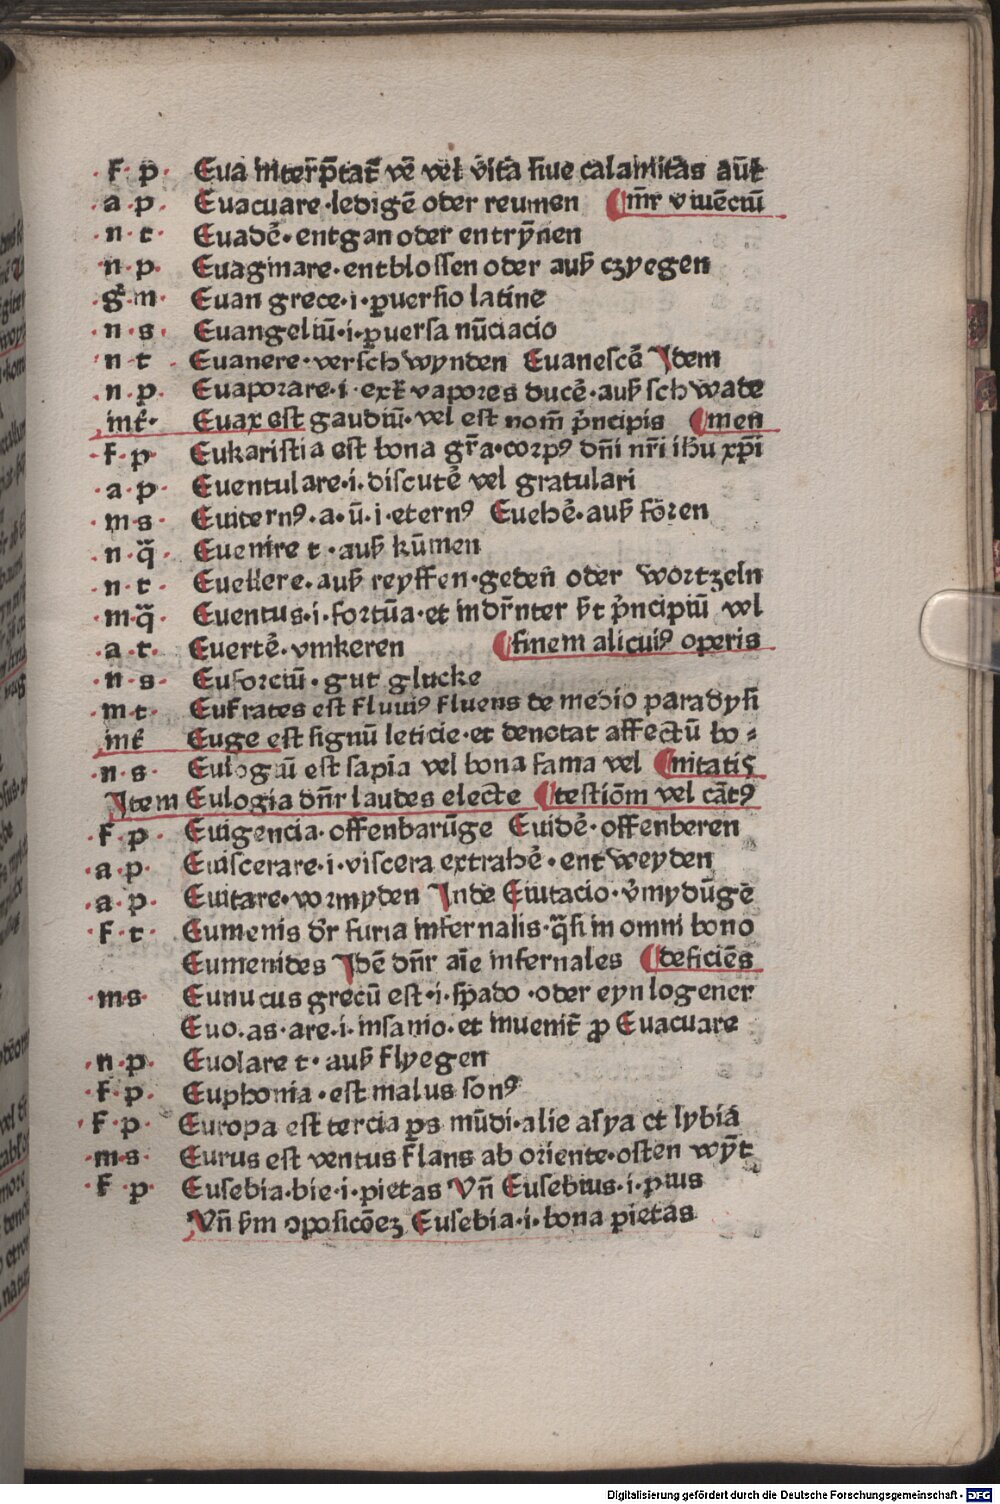 f · p · Eua interp̄tat̄ ve̅ vel vita siue calamitas aut̄
a · p · Euacuare · ledige̅ oder reumen ¶ mr̄ viue̅ciu̅
n · t · Euade̅ · entgan oder entry̅nen
n · p · Euaginare · entblossen oder auß czyegen
g̅ · m · Euan grece · i · ꝑuersio latine
n · s · Euangeliu̅ · i · ꝑuersa nu̅ciacio
n · t · Euanere · verschwynden Euanesce̅ Idem
n · p · Euaporare · i · ext̄ vapores duce̅ · auß schwade
int̄ · Euax est gaudiu̅ · vel est nom̅ p̄ncipis ¶ men
f · p Eukaristia est bona gr̄a · corpꝰ dn̄i nr̄i ihu xp̄i
a · p · Euentulare · i · discute̅ vel gratulari
m · s · Euiternꝰ · a · u̅ · i · eternꝰ Euehe̅ · auß foren
n · q̄ · Euenire t · auß ku̅men
n · t · Euellere · auß reyffen · geden̄ oder wortzeln
m · q̄ · Euentus · i · fortu̅a · et indr̄nter ht̄ p̄ncipiu̅ vel
a · t · Euerte̅ · vmkeren ¶ finem alicuiꝰ operis
n · s · Euforciu̅ · gut glucke
m · t · Eufrates est fluuiꝰ fluens de medio paradysi
int̄ Euge est signu̅ leticie · et denotat affectu̅ bo⸗
n · s · Eulogiu̅ est sapia vel bona fama vel ¶ nitatis
Item Eulogia dn̄r laudes electe ¶ testio̅m vel ca̅tꝰ
f · p · Euigencia · offenbaru̅ge Euide̅ · offenberen
a · p · Euiscerare · i · viscera extrahe̅ · entweyden
a · p · Euitare · vormyden Inde Euitacio · v̄mydu̅ge
f · t · Eumenis dr̄ furia infernalis · q̄si in omni bono
Eumenides Ide̅ dn̄r aīe infernales ¶ deficie̅s
m s · Eunucus grecu̅ est · i · spado · oder eyn logener
Euo · as · are · i · insanio · et inuenit̄ ꝓ Euacuare
n · p · Euolare t · auß flyegen
f · p · Euphonia · est malus sonꝰ
f · p · Europa est tercia ꝑs mu̅di · alie asya et lybia
m · s · Eurus est ventus flans ab oriente · osten wy̅t
f · p · Eusebia · bie · i · pietas Vn̄ Eusebius · i · pius
Vn̄ hm̄ oposico̅eꝫ Eusebia · i · bona pietas
Digitalisierung gefördert durch die Deutsche Forschungsgemeinschaft · DFG